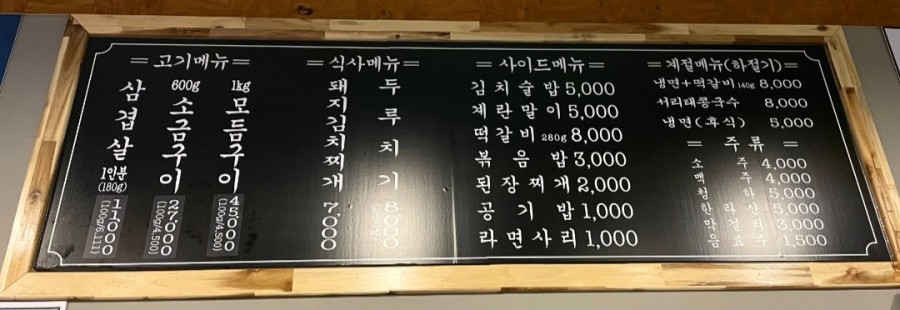 = 고기메뉴 =
삼겹살 1인분 (180g) 11,000 (100g/6,111)
600g 소금구이 27,000 (100g/4,500)
1kg 모듬구이 45,000 (100g/4,500)
= 식사메뉴 =
돼지김치찌개 7,000
두루치기 8,000
= 사이드메뉴 =
김치술밥 5,000
계란말이 5,000
떡갈비 280g 8,000
볶음밥 3,000
된장찌개 2,000
공기밥 1,000
라면사리 1,000
= 계절메뉴(하절기) =
냉면+떡갈비 140g 8,000
서리태콩국수 8,000
냉면(후식) 5,000
= 주류 =
소주 4,000
맥주 4,000
청하 5,000
한라산 5,000
막걸리 3,000
음료수 1,500